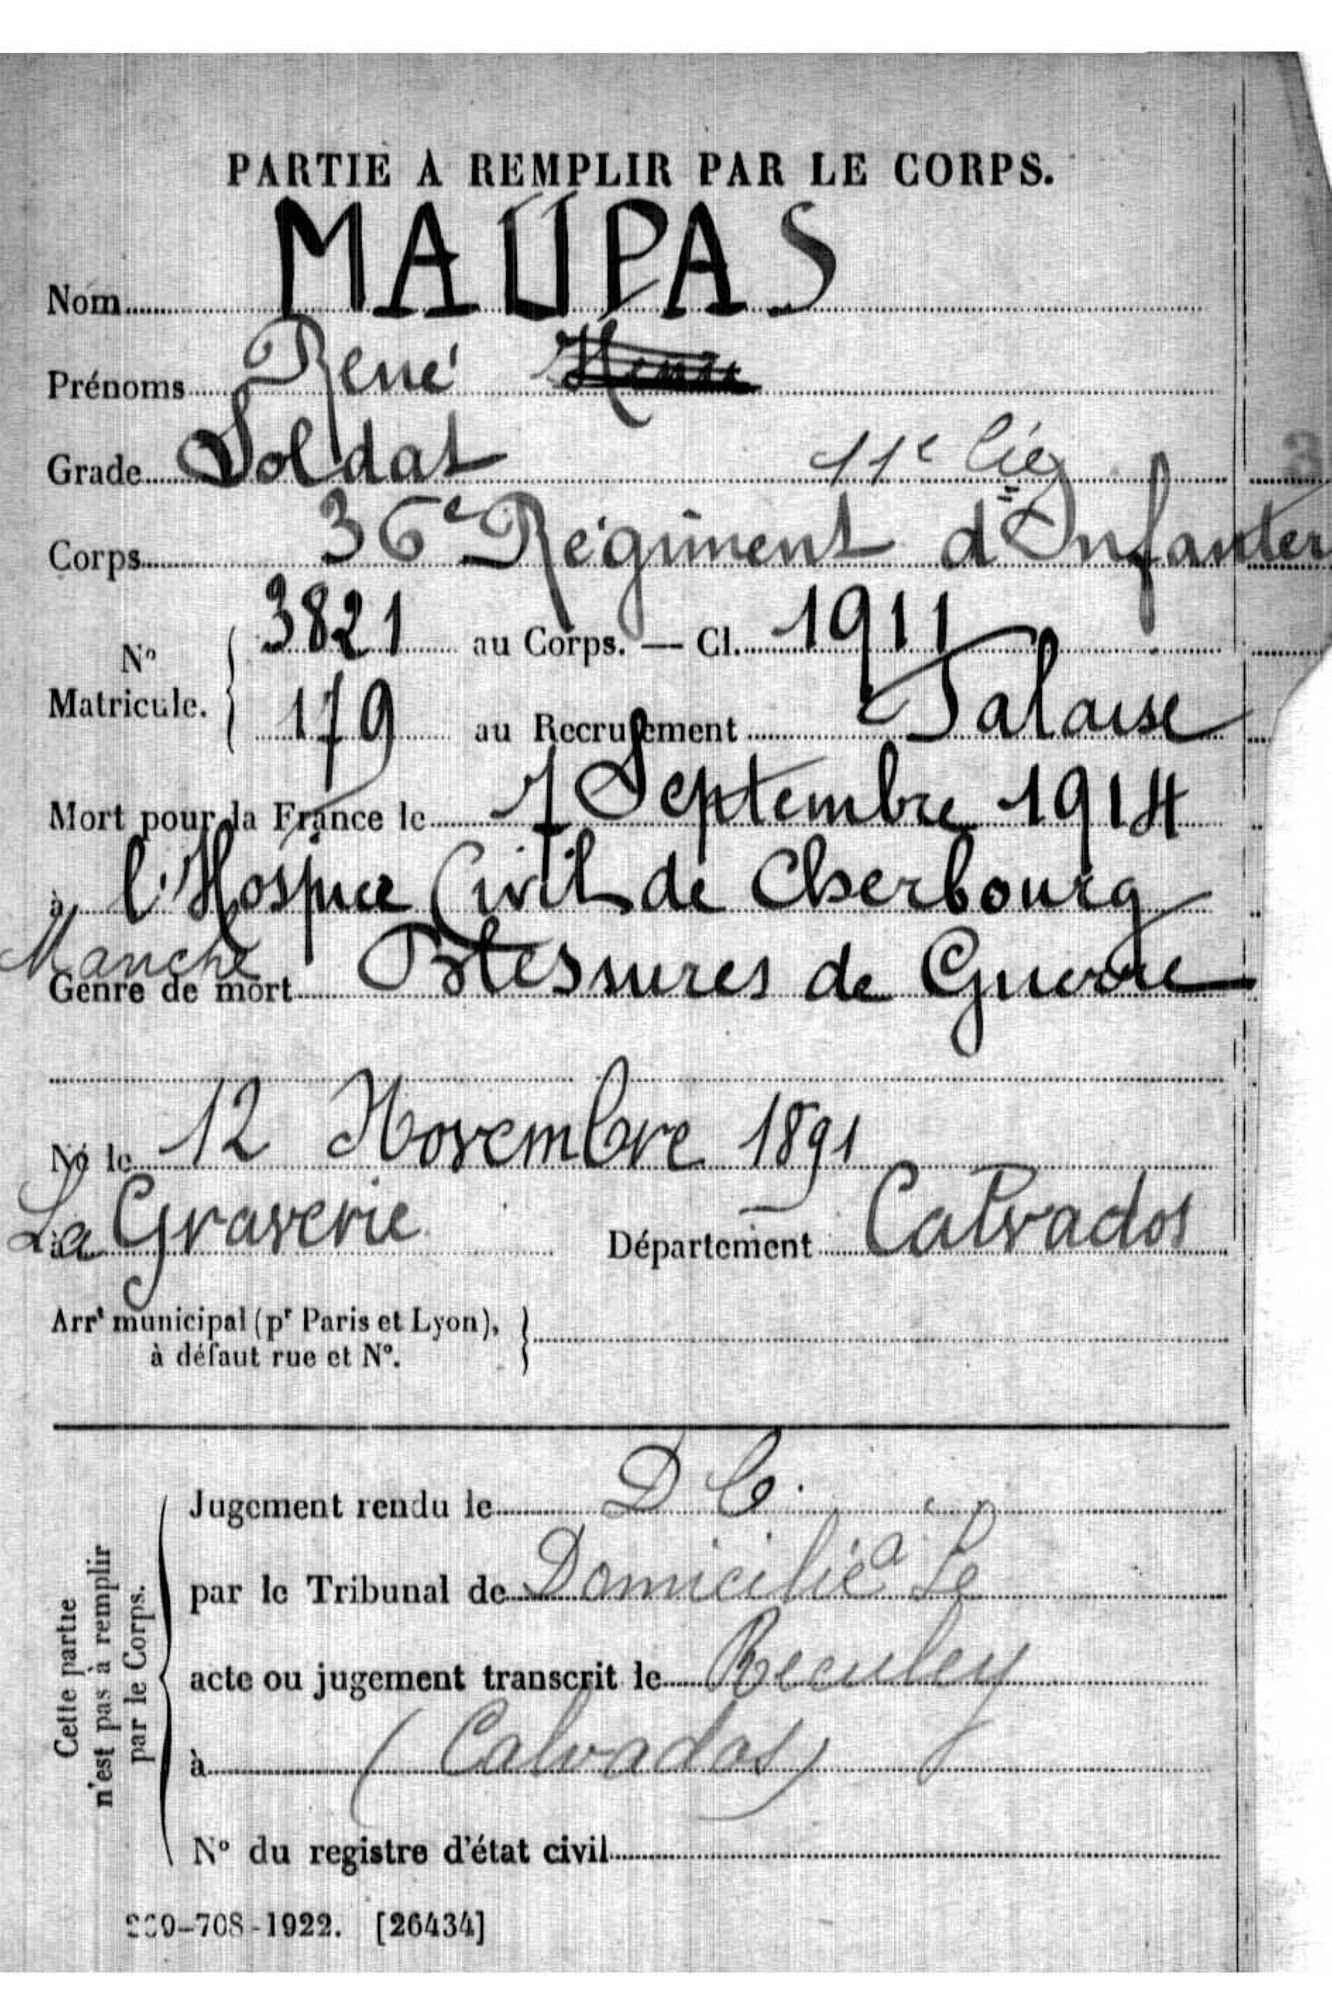 PARTIE À REMPLIR PAR LE CORPS.
Nom MAUPAS
Prénoms René Henri
Grade Soldat 11e Cie
Corps 36e Régiment d'Infanter
No Matricule. 3821 au Corps. — Cl. 1911
179 au Recrutement Falaise
Mort pour la France le 7 Septembre 1914
à l'Hospice Civil de Cherbourg
Manche
Genre de mort Blessures de Guerre
Né le 12 Novembre 1891
à La Graverie Département Calvados
Arrt municipal (pr Paris et Lyon),
à défaut rue et No.
Cette partie
n'est pas à remplir
par le Corps.
Jugement rendu le D C.
par le Tribunal de Domicilié à Le
acte ou jugement transcrit le Reculey
à (Calvados)
No du registre d'état civil
-708-1922. [26434]